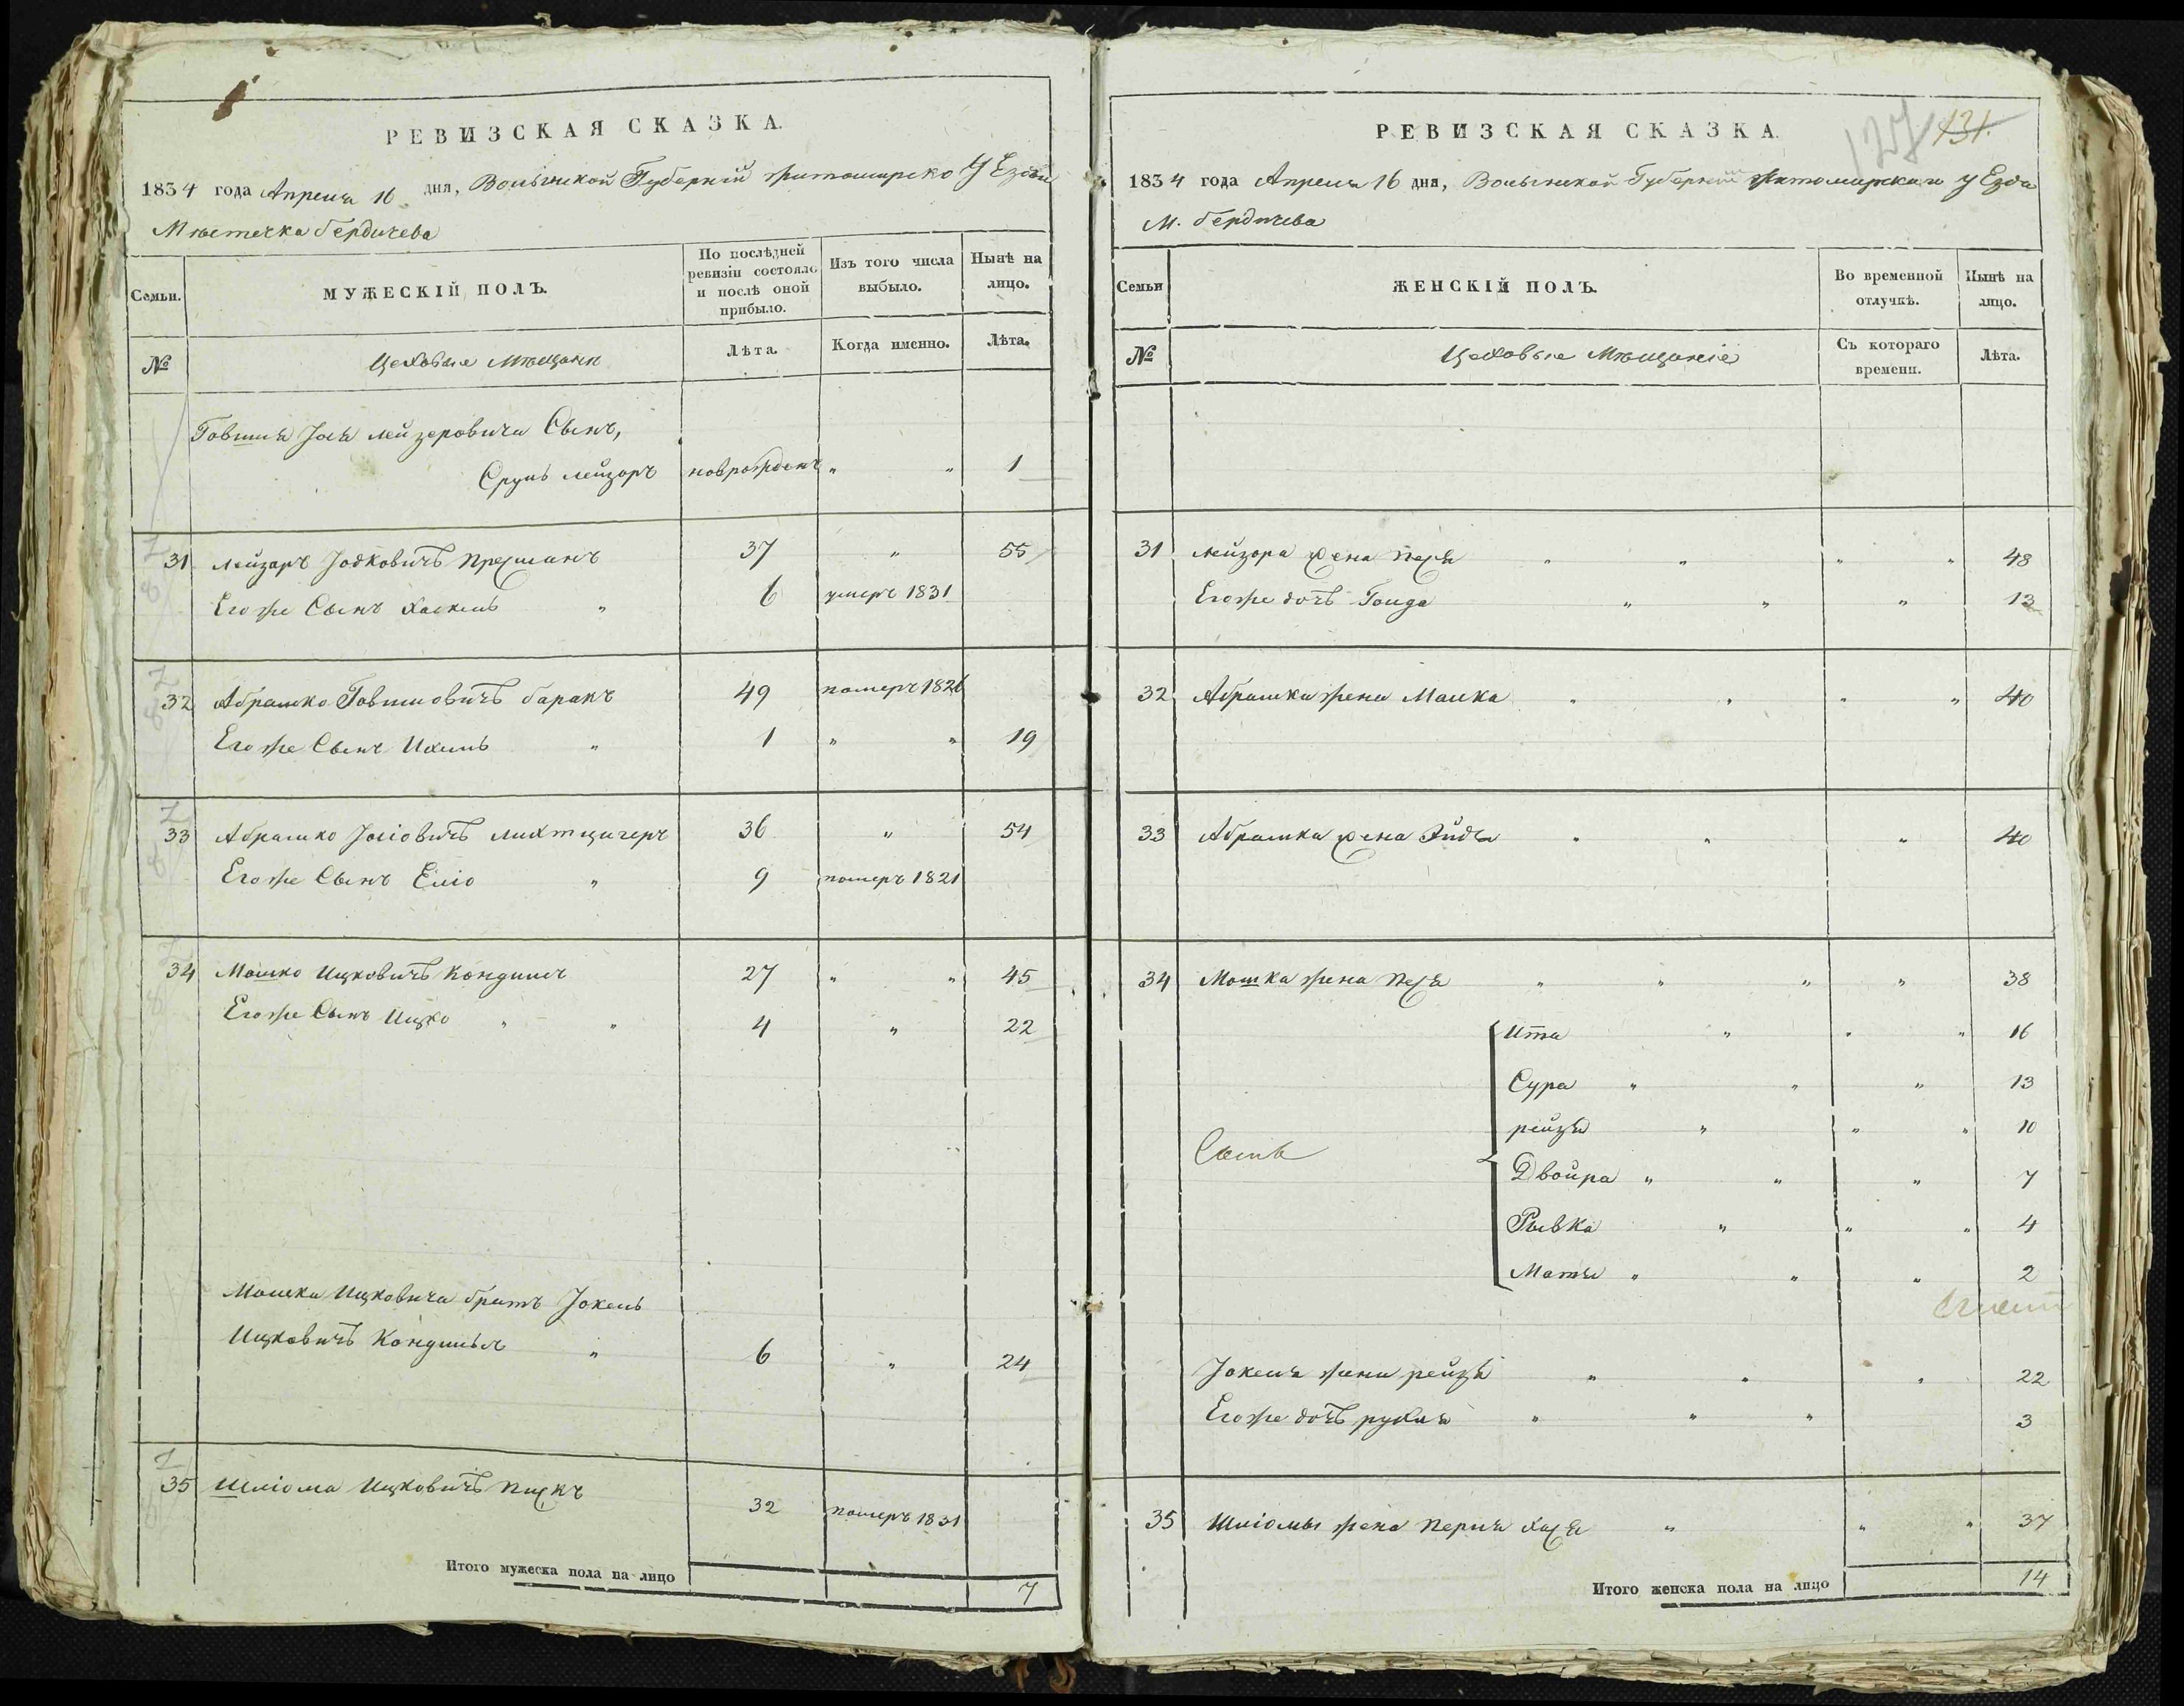 РЕВИЗСКАЯ СКАЗКА.
1834 года Апреля 16 дня, Волынской Губерніи Житомирско Уезда
Местечка Бердичева
Семьи.
МУЖЕСКІЙ ПОЛЪ.
По послѣдней ревизіи состояло и послѣ оной прибыло.
Изъ того числа выбыло.
Нынѣ на лицо.
№
Цеховые Мѣщани
Лѣта.
Когда именно.
Лѣта.
Говшия Іося Лейзеровича Сынъ,
Сруль Лейзоръ новрожденъ " " 1
31 Лейзоръ Іосковичъ 37 " 55
Его же Сынъ Хаскель " 6 умеръ 1831
32 Абрамко Говшиовичъ Баранъ 49 померъ 1826
Его же Сынъ Ихиль " 1 " " 19
33 Абрамко Іосіовичъ Лихтцигеръ 36 " 54
Его же Сынъ Еліо " 9 померъ 1821
34 Мошко Ицковичъ 27 " " 45
Его же Сынъ Ицко " " 4 " 22
Мошка Ицковича братъ Іокель
Ицковичъ " 6 " 24
35 Шліома Ицковичъ 32 померъ 1831
Итого мужеска пола на лицо 7
127 131.
РЕВИЗСКАЯ СКАЗКА.
1834 года Апреля 16 дня, Волынской Губерніи Житомирскаго Уезда
М. Бердичева
Семьи
ЖЕНСКІЙ ПОЛЪ.
Во временной отлучкѣ.
Нынѣ на лицо.
№
Цеховые Мѣщаніе
Съ котораго времени.
Лѣта.
31 Лейзора жена Песя " " " " 48
Его же дочь Голда " " " 13
32 Абрамка жена Малка " " " " 40
33 Абрамка жена Эйдя " " " 40
34 Мошка жена Песя " " " " 38
Ита " " " 16
Сура " " " 13
рейзя " " " 10
Двойра " " " 7
Рывка " " " 4
Матя " " " 2
Іокеля жена рейзя " " " 22
Его же дочь рухля " " " 3
35 Шліомы жена Перля Хася " " " 37
Итого женска пола на лицо 14